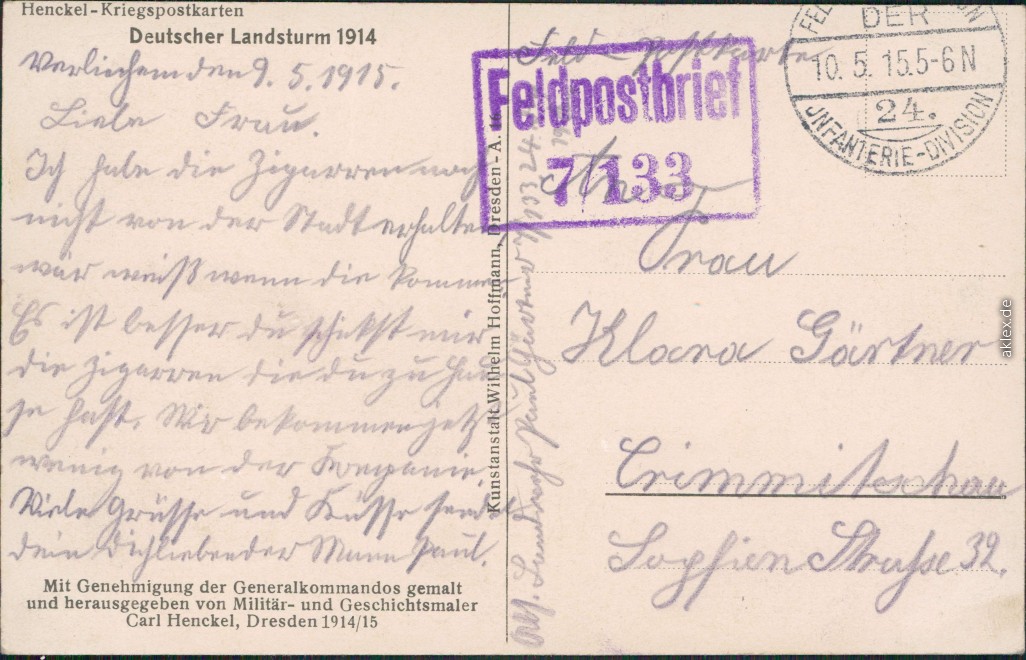 Henckel-Kriegspostkarten
Deutscher Landsturm 1914
den 9.5.1915.
Liebe Frau.
Ich habe die Zigarren noch
nicht von der Stadt erhalten
wär weiß wenn die kommen
Es ist besser du schikst mir
die Zigarren die du zu Hau
se hast. Wir bekommen jetzt
wenig von der Kompanie.
Viele Grüsse und Küsse sendet
dein Dichliebender Mann Paul.
Mit Genehmigung der Generalkommandos gemalt
und herausgegeben von Militär- und Geschichtsmaler
Carl Henckel, Dresden 1914/15
Kunstanstalt Wilhelm Hoffmann, Dresden-A. 16
Abs. Landwehr Paul Gärtner 7/133 24.
Feld-Postkarte
Feldpostbrief
7/133
DER
10. 5. 15.5-6 N
24.
JNFANTERIE-DIVISION
An
Frau
Klara Gärtner
Crimmitschau
Sophien Straße 32.
aklex.de